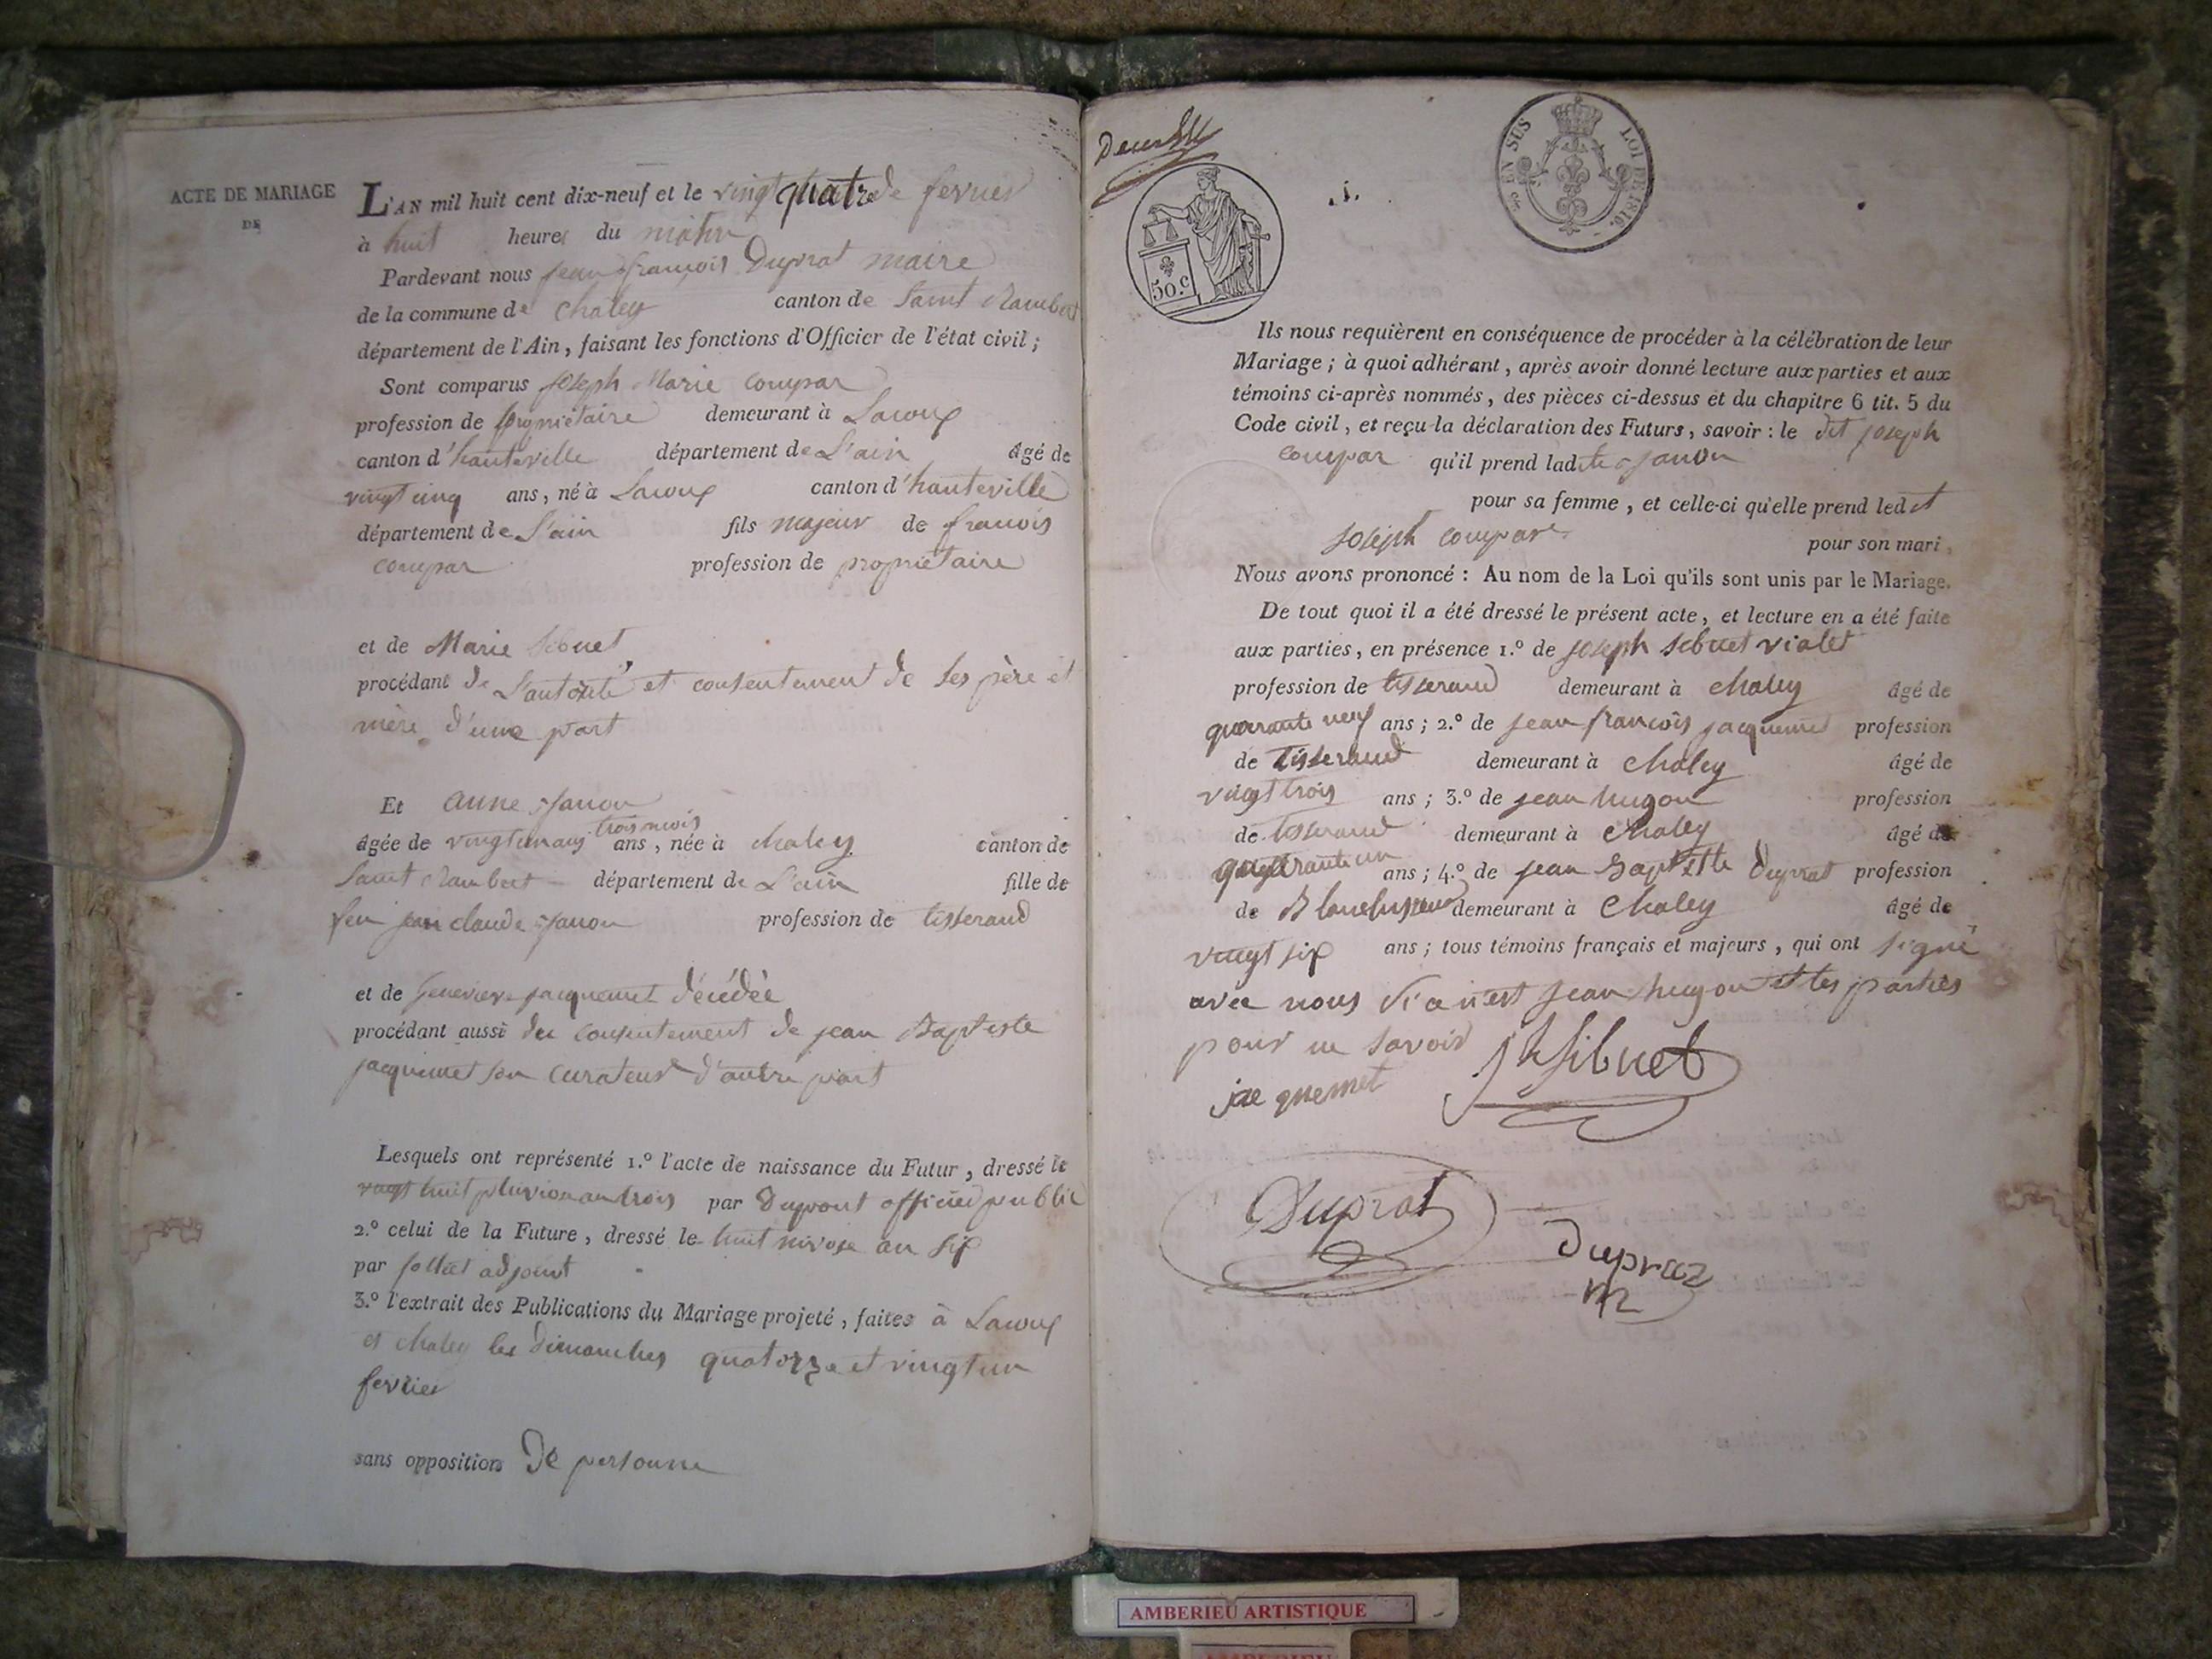 ACTE DE MARIAGE
DE
L'AN mil huit cent dix-neuf et le vingt quatre de fevrier
à huit heures du matin
Pardevant nous jean françois Duprat maire
de la commune de Chaley canton de Saint Rambert
département de l'Ain, faisant les fonctions d'Officier de l'état civil ;
Sont comparus joseph Marie compar
profession de propriétaire demeurant à Lacoux
canton d'hauteville département de L'ain âgé de
vingt cinq ans, né à Lacoux canton d'hauteville
département de L'ain fils majeur de francois
compar profession de propriétaire
et de Marie Sibuet
procédant de L'autorité et consentement de ses père et
mère d'une part
Et anne janon
âgée de vingt un ans trois mois ans, née à chaley canton de
Saint Rambert département de L'ain fille de
feu jean claude janon profession de tisserand
et de Genevieve jacquemet décédée
procédant aussi du consentement de jean Baptiste
jacquemet son curateur d'autre part
Lesquels ont représenté 1.º l'acte de naissance du Futur, dressé le
vingt huit pluviose an trois par Dupont officier public
2.º celui de la Future, dressé le huit nivose an six
par adjoint
3.º l'extrait des Publications du Mariage projeté, faites à Lacoux
et chaley les dimanches quatorze et vingt un
fevrier
sans opposition De personne
50.c
EN SUS LOI DE 1816.
Ils nous requièrent en conséquence de procéder à la célébration de leur
Mariage ; à quoi adhérant, après avoir donné lecture aux parties et aux
témoins ci-après nommés, des pièces ci-dessus et du chapitre 6 tit. 5 du
Code civil, et reçu la déclaration des Futurs, savoir : le dit joseph
compar qu'il prend ladite janon
pour sa femme, et celle-ci qu'elle prend ledit
joseph compare pour son mari,
Nous avons prononcé : Au nom de la Loi qu'ils sont unis par le Mariage.
De tout quoi il a été dressé le présent acte, et lecture en a été faite
aux parties, en présence 1.º de joseph sibuet violet
profession de tisserand demeurant à chaley âgé de
quarante neuf ans ; 2.º de jean françois jacquemet profession
de tisserand demeurant à chaley âgé de
vingt trois ans ; 3.º de jean hugon profession
de tisserand demeurant à chaley âgé de
quarante un ans ; 4.º de jean Baptiste Duprat profession
de demeurant à Chaley âgé de
vingt six ans ; tous témoins français et majeurs, qui ont signé
avec nous si ce n'est jean hugon et les parties
pour ne savoir
jh Sibuet
jacquemet
Duprat
Dupraz
m
AMBERIEU ARTISTIQUE
AMBERIEU